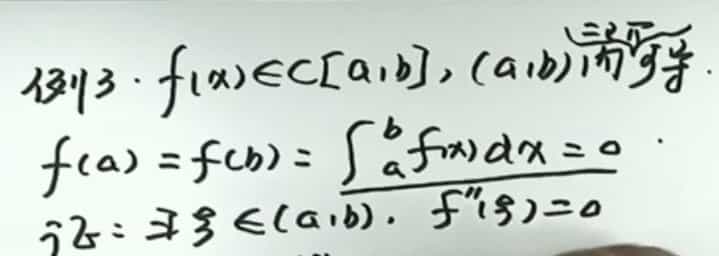 例3. f(x)∈C[a,b], (a,b)内二阶可导.
f(a)=f(b)=∫ₐᵇf(x)dx=0.
证:∃ξ∈(a,b). f''(ξ)=0